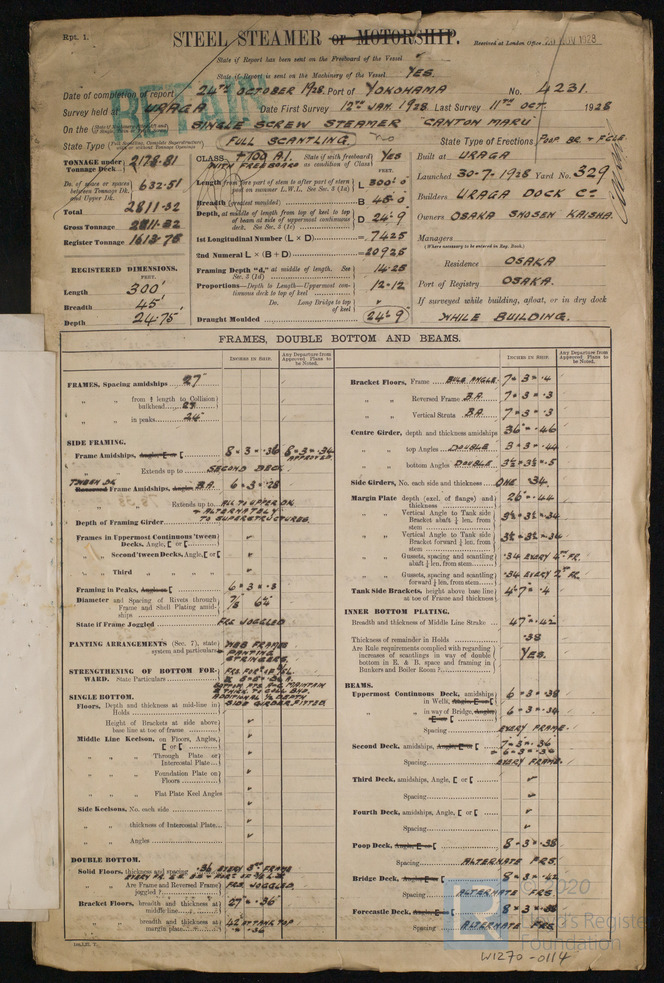 Rpt. 1.
STEEL STEAMER or MOTORSHIP.
Received at London Office
State if Report has been sent on the Freeboard of the Vessel
State if Report is sent on the Machinery of the Vessel YES.
RETAIN
Date of completion of report 24TH OCTOBER 1928. Port of YOKOHAMA No. 4231.
Survey held at URAGA Date First Survey 12TH JAN. 1928. Last Survey 11TH OCT. 1928
On the SINGLE SCREW STEAMER "CANTON MARU"
State Type FULL SCANTLING. No State Type of Erections POOP BR. & F'CLE.
TONNAGE under Tonnage Deck 2178.81
Do. of space or spaces between Tonnage Dk. and Upper Dk. 632.51
Total 2811.32
Gross Tonnage 2811.32
Register Tonnage 1613.75
REGISTERED DIMENSIONS.
FEET.
Length 300'
Breadth 45'
Depth 24.75'
CLASS +100 A.1. State if with freeboard as condition of Class Yes
WITH FREEBOARD
FEET.
Length from fore part of stem to after part of stern post on summer L.W.L. See Sec. 3 (1a) L 300'.0
Breadth (greatest moulded) B 45.0
Depth, at middle of length from top of keel to top of beam at side of uppermost continuous deck. See Sec. 3 (1c) D 24'.9
1st Longitudinal Number (L × D) = 7425
2nd Numeral L × (B + D) = 20925
Framing Depth "d," at middle of length. See Sec. 3 (1d) 14.25
Proportions—Depth to Length—Uppermost continuous deck to top of keel 12.12
Do. Long Bridge to top of keel
Draught Moulded 24'.9
Built at URAGA
Launched 30.7.1928 Yard No. 329
Builders URAGA DOCK Co
Owners OSAKA SHOSEN KAISHA.
Managers
(Where necessary to be entered in Reg. Book.)
Residence OSAKA
Port of Registry OSAKA.
If surveyed while building, afloat, or in dry dock
WHILE BUILDING.
FRAMES, DOUBLE BOTTOM AND BEAMS.
INCHES IN SHIP.
Any Departure from Approved Plans to be Noted.
INCHES IN SHIP.
Any Departure from Approved Plans to be Noted.
FRAMES, Spacing amidships 27"
" " from ⅕ length to Collision bulkhead 27
" " in peaks 24"
SIDE FRAMING.
Frame Amidships, Angle, [ or [ 8 × 3 × .36 8 × 3 × .34 APPROVED
" " Extends up to SECOND DECK
TWEEN DK Reversed Frame Amidships, Angle, B.A. 6 × 3 × .28
" " Extends up to ALL TO UPPER DK & ALTERNATELY TO SUPERSTRUCTURES.
Depth of Framing Girder
Frames in Uppermost Continuous 'tween Decks, Angle, [ or [
" Second 'tween Decks, Angle, [ or [
" Third " " " "
Framing in Peaks, Angle or [ 6 × 3 × .3
Diameter and Spacing of Rivets through Frame and Shell Plating amidships 7/8
State if Frame Joggled FRS JOGGLED
PANTING ARRANGEMENTS (Sec. 7), state system and particulars WEB FRAMES & PANTING STRINGERS.
STRENGTHENING OF BOTTOM FORWARD. State Particulars
ADDITIONAL ½ DEPTH SIDE GIRDER FITTED
SINGLE BOTTOM.
Floors, Depth and thickness at mid-line in Holds
Height of Brackets at side above base line at toe of frame
Middle Line Keelson, on Floors, Angles, [ or [
" " Through Plate or Intercostal Plate
" " Foundation Plate on Floors
" " Flat Plate Keel Angles
Side Keelsons, No. each side
" " thickness of Intercostal Plate
" " Angles
DOUBLE BOTTOM.
Solid Floors, thickness and spacing .36 EVERY 3RD FRAME
" " Are Frame and Reversed Frame joggled? FRS JOGGLED.
Bracket Floors, breadth and thickness at middle line 27" × .36
" " breadth and thickness at margin plate 42 AT TANK TOP × .36
Bracket Floors, Frame BULB ANGLE. 7 × 3 × .4
" " Reversed Frame B.A. 7 × 3 × .3
" " Vertical Struts B.A. 7 × 3 × .3
Centre Girder, depth and thickness amidships 36" × .46
" " top Angles DOUBLE 3 × 3 × .44
" " bottom Angles DOUBLE 3½ × 3½ × .5
Side Girders, No. each side and thickness ONE .34
Margin Plate depth (excl. of flange) and thickness 26" × .44
" " Vertical Angle to Tank side Bracket abaft ¼ len. from stem 3½ × 3½ × .34
" " Vertical Angle to Tank side Bracket forward ¼ len. from stem 3½ × 3½ × .34
" " Gussets, spacing and scantling abaft ¼ len. from stem .34 EVERY 4TH FR.
" " Gussets, spacing and scantling forward ¼ len. from stem .34 EVERY 2ND FR.
Tank Side Brackets, height above base line at toe of Frame and thickness 4'.7" × .4
INNER BOTTOM PLATING.
Breadth and thickness of Middle Line Strake 47" × .42
Thickness of remainder in Holds .38
Are Rule requirements complied with regarding increases of scantlings in way of double bottom in E. & B. space and framing in Bunkers and Boiler Room? YES.
BEAMS.
Uppermost Continuous Deck, amidships in Wells, Angle, [ or [ 6 × 3 × .38
" " in way of Bridge, Angle, [ or [ 6 × 3 × .34
Spacing EVERY FRAME.
Second Deck, amidships, Angle, [ or [ 7 × 3 × .36
Spacing EVERY FRAME.
Third Deck, amidships, Angle, [ or [
Spacing
Fourth Deck, amidships, Angle, [ or [
Spacing
Poop Deck, Angle, [ or [ 8 × 3 × .38
Spacing ALTERNATE FRS.
Bridge Deck, Angle, [ or [ 8 × 3 × .42
Spacing ALTERNATE FRS
Forecastle Deck, Angle, [ or [ 8 × 3 × .38
Spacing ALTERNATE FRS
© 2020
Lloyd's Register
Foundation
W1270-0114